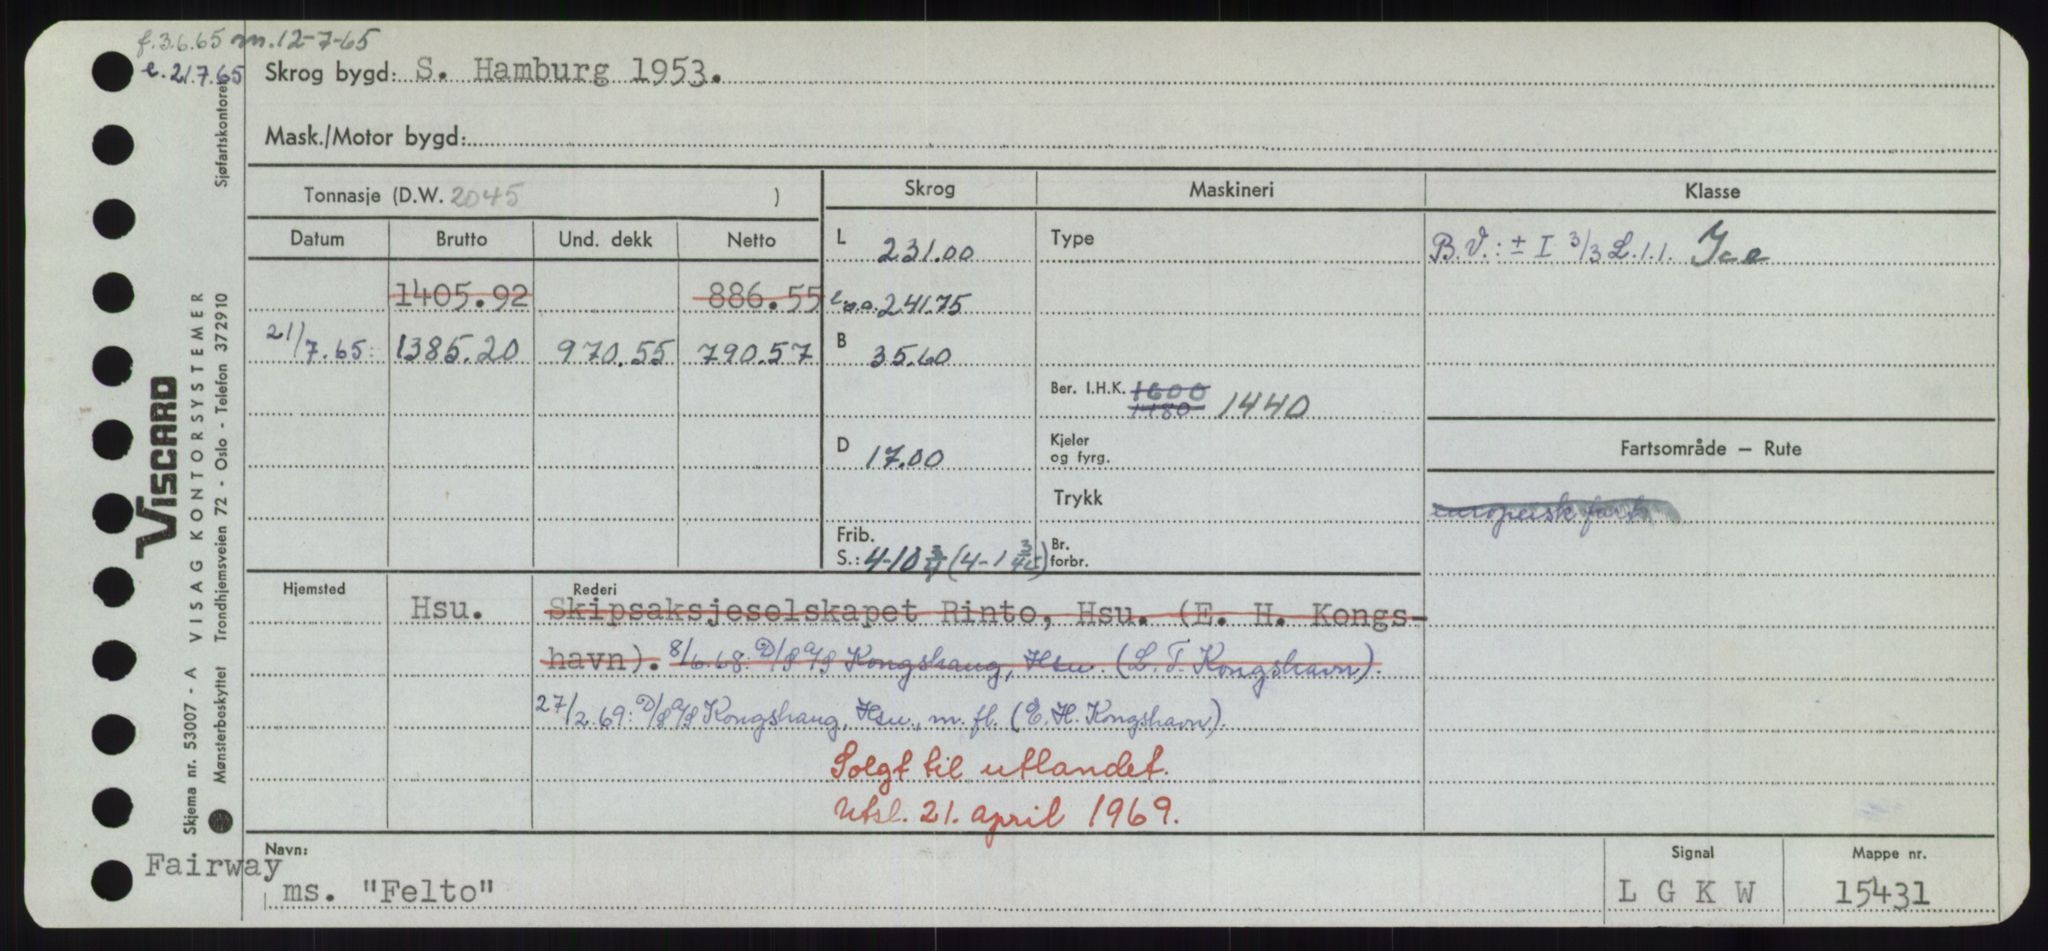 f. 3.6.65 m. 12-7-65
e. 21.7.65
Skrog bygd: S. Hamburg 1953.
Mask./Motor bygd:
Tonnasje (D.W. 2045 )
Skrog
Maskineri
Klasse
Datum
Brutto
Und. dekk
Netto
L 231.00
Type
B.V.: ± I 3/3 L.1.1. Ice
1405.92
886.55
l.o.a. 241.75
21/7.65:
1385.20
970.55
790.57
B 35.60
Ber. I.H.K. 1600
1180 1440
D 17.00
Kjeler
og fyrg.
Fartsområde – Rute
Trykk
europeisk fart
Frib.
S.: 4-10 (4-1 3/4)
Br.
forbr.
Hjemsted
Hsu.
Rederi
Skipsaksjeselskapet Rinto, Hsu. (E. H. Kongs-
havn). 8/6.68: D/S A/S Kongshaug, Hsu. (L. T. Kongshavn).
27/2.69: D/S A/S Kongshaug, Hsu., m. fl. (E. H. Kongshavn).
Solgt til utlandet.
Utsl. 21. april 1969.
Navn:
Fairway
ms. "Felto"
Signal
L G K W
Mappe nr.
15431
VISCARD
VISAG KONTORSYSTEMER
Skjema nr. 53007 - A
Mønsterbeskyttet Trondhjemsveien 72 - Oslo - Telefon 372910
Sjøfartskontoret